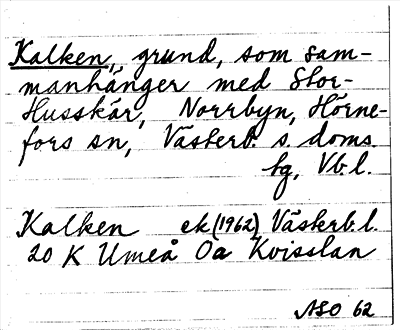 Kalken, grund, som sam-
manhänger med Stor-
Husskär, Norrbyn, Hörne-
fors sn, Västerb. s. doms.
tg, Vb.l.
Kalken ek (1962) Västerb. l.
20 K Umeå Oa Kvisslan
ASO 62